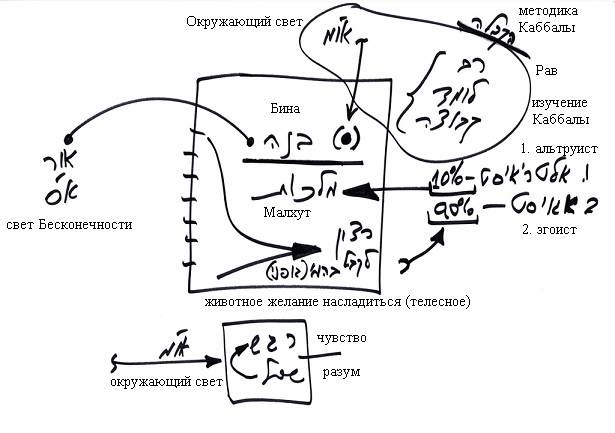 методика
Каббалы
Окружающий свет
או"מ
הקבלה
רב
Рав
לומד
изучение
Каббалы
קבוצה
Бина
בינה (•)
1. альтруист
1. אלטרואיסט – 10%
מלכות
Малхут
2 אגואיסט – 90%
2. эгоист
אור
א"ס
свет Бесконечности
רצון
לקבל
בהמי (גופני)
животное желание насладиться (телесное)
או"מ
окружающий свет
רגש
чувство
שכל
разум